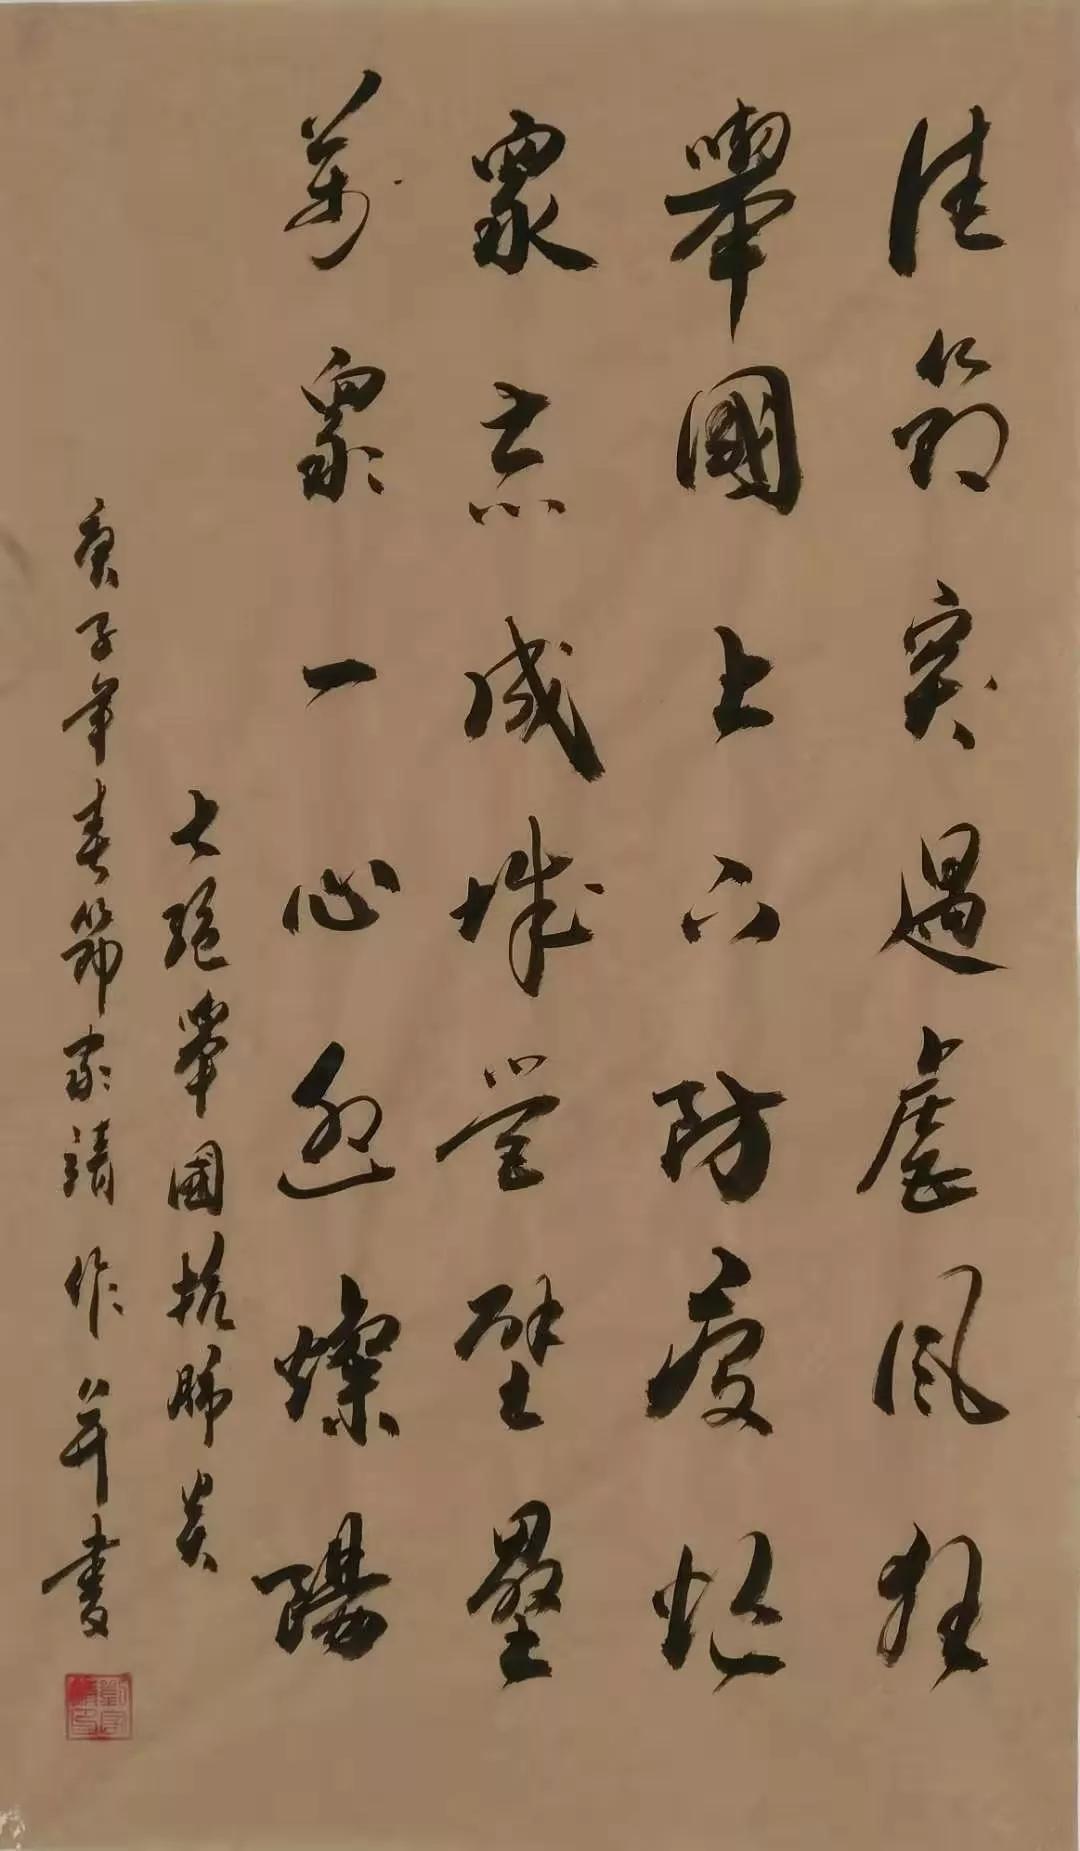 佳節突遇虐風狂
舉國上下防疫忙
眾志成城營壁壘
萬眾一心迎燦陽
七絕舉國抗肺炎
庚子年春節家靖作並書